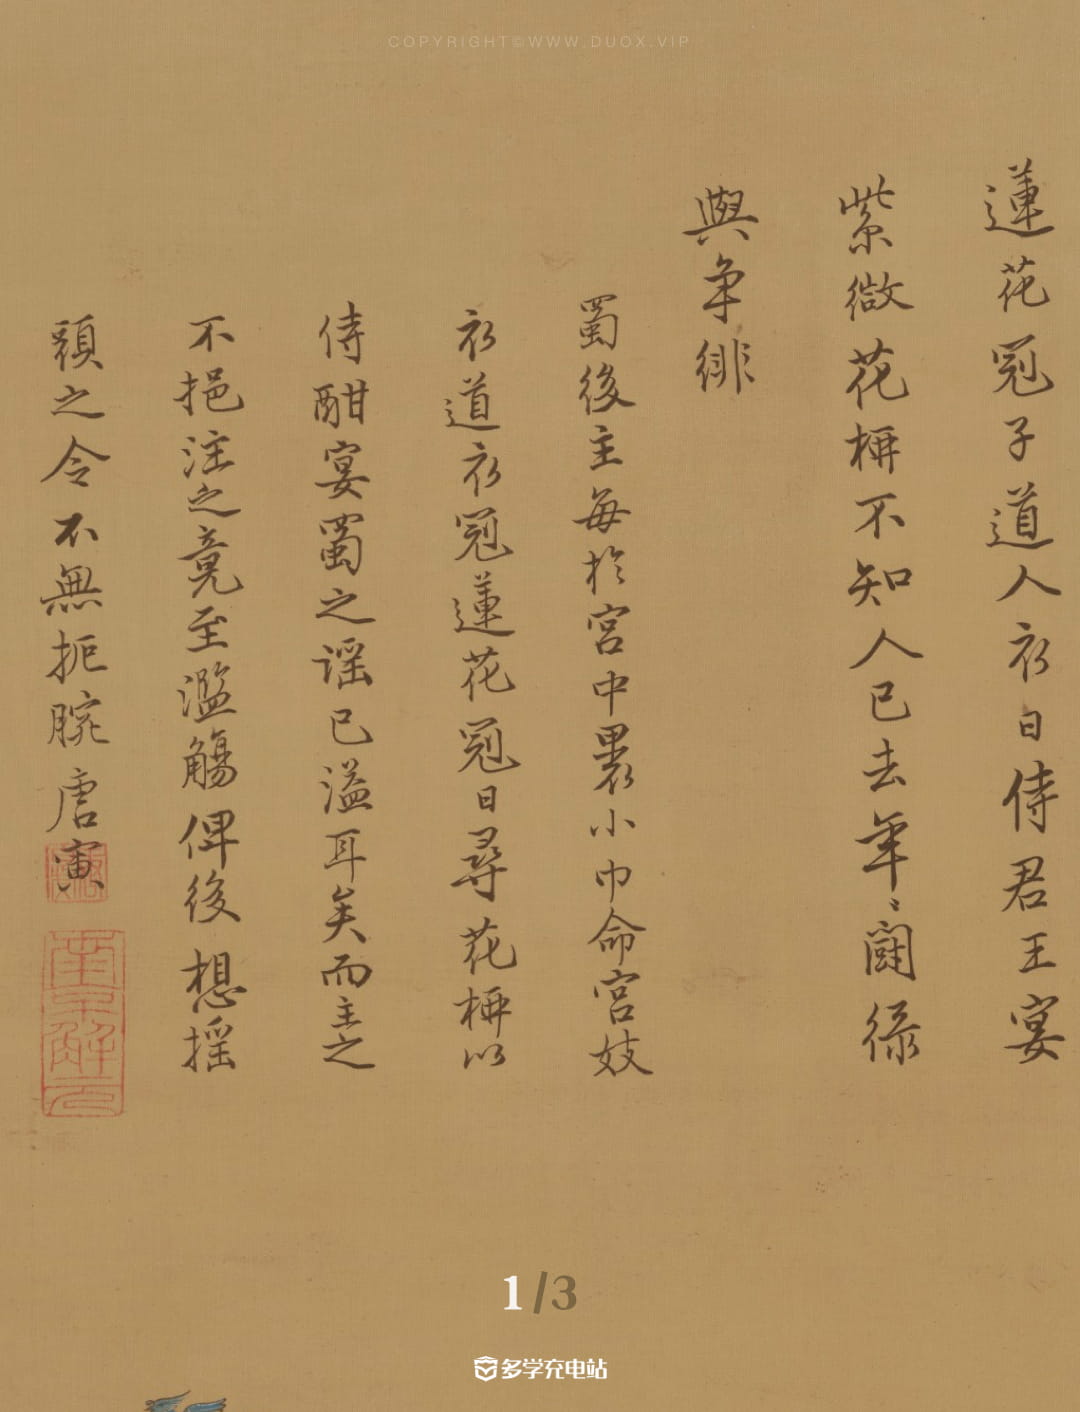 COPYRIGHT©WWW.DUOX.VIP
蓮花冠子道人衣日侍君王宴
紫微花柳不知人已去年〻鬪緑
與爭緋
蜀後主每於宮中裹小巾命宮妓
衣道衣冠蓮花冠日尋花柳以
侍酣宴蜀之謠已溢耳矣而主之
不挹注之竟至濫觴俾後想搖
頭之令不無扼腕唐寅
南京解元
1/3
多学充电站